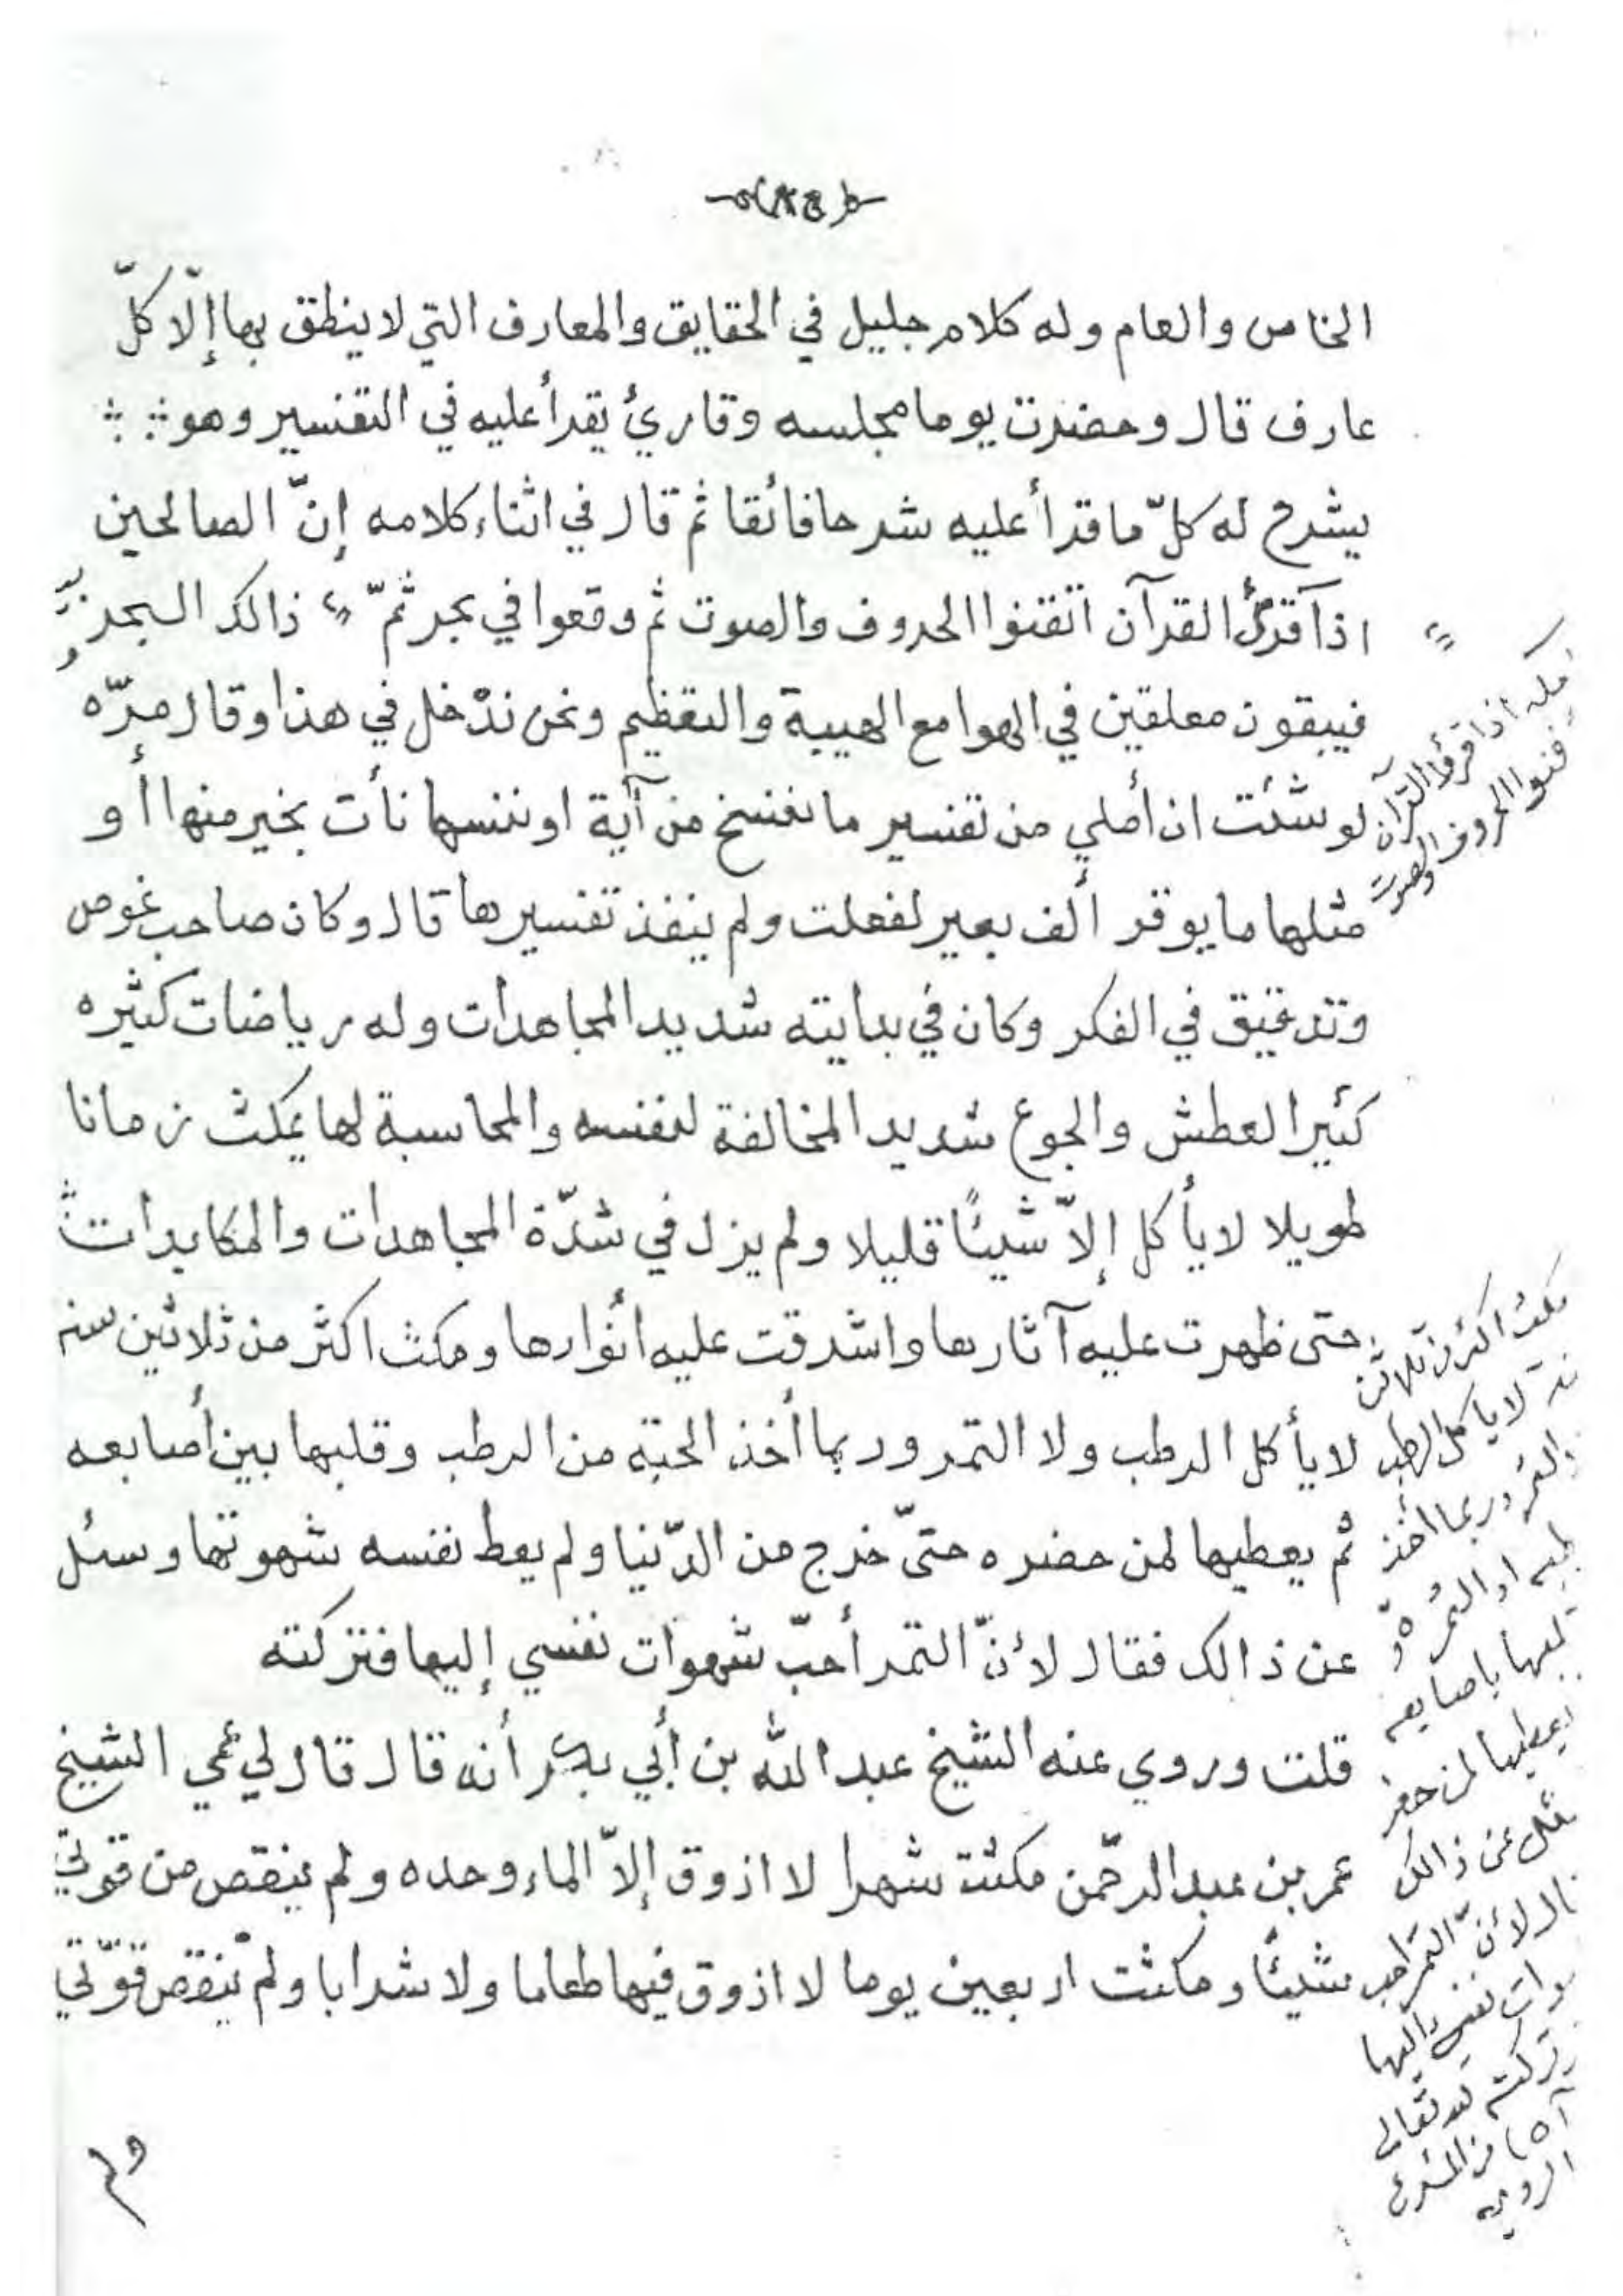 الخاص والعام وله كلام جليل في الحقايق والمعارف التي لا ينطق بها إلّا كلّ
عارف قال وحضرت يوما مجلسه وقارئ يقرأ عليه في التفسير وهو
يشرح له كلّ ما قرأ عليه شرحا فائقا ثم قال في اثناء كلامه إنّ الصالحين
اذا القرآن اتقنوا الحروف والصوت ثم وقعوا في بحر ثمّ ذالك البحر
فيبقون معلقين في الهوا مع الهيبة والتعظيم ونحن ندْخل في هذا وقال مرّه
لو شئت ان أملي من تفسير ما ننسخ من آية او ننسها نأت بخير منها أو
مثلها ما يوقر ألف بعير لفعلت ولم ينفذ تفسيرها قال وكان صاحب غوص
وتدقيق في الفكر وكان في بدايته شديد المجاهدات وله رياضات كثيره
كثير العطش والجوع شديد المخالفة لنفسه والمحاسبة لها يمكث زمانا
طويلا لا يأكل إلاّ شيئًا قليلا ولم يزل في شدّة المجاهدات والمكابدات
حتى ظهرت عليه آثارها واشرقت عليه انوارها ومكث اكثر من ثلاثين سنه
لا يأكل الرطب ولا التمر وربما أخذ الحبّه من الرطب وقلبها بين أصابعه
ثم يعطيها لمن حضره حتىّ خرج من الدّنيا ولم يعط نفسه شهوتها وسئل
عن ذالك فقال لأنّ التمر أحبّ شهوات نفسي إليها فتركته
قلت وروي عنه الشيخ عبد الله بن أبي بكر أنه قال قال لي عمي الشيخ
عمر بن عبد الرحّمن مكثت شهرا لا اذوق إلاّ الماء وحده ولم ينقص من قوتي
شيئًا ومكثت اربعين يوما لا اذوق فيها طعاما ولا شرابا ولم تنقص قوّتي
اذا قرؤا القرآن
الحروف والصوت
مكث اكثر من ثلاثين
لا ياكل الرطب
وربما اخذ
او التمره
باصابعه
يعطيها لمن حضر
عن ذالك
لأنّ التمر احب
نفسي اليها
تركته لله تعالى
من المشرع
الروي
ولم